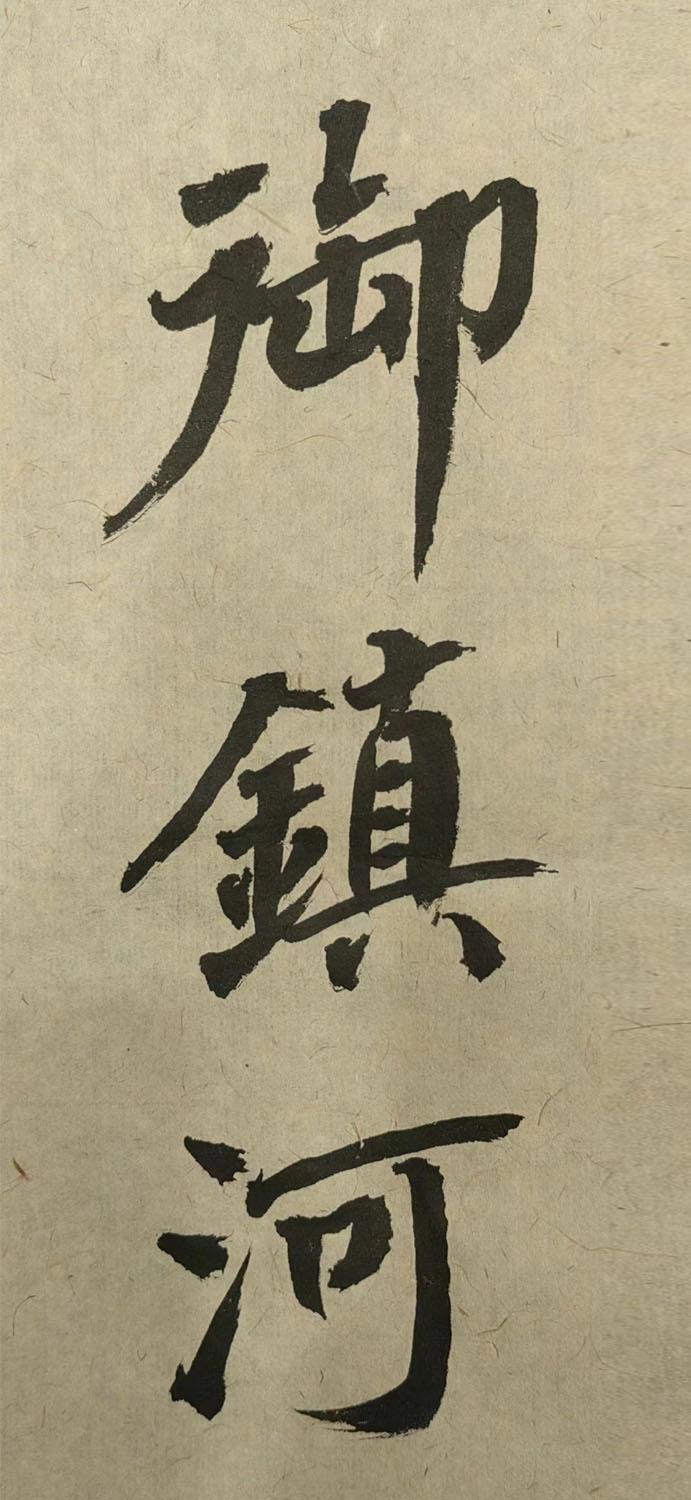 御鎮河